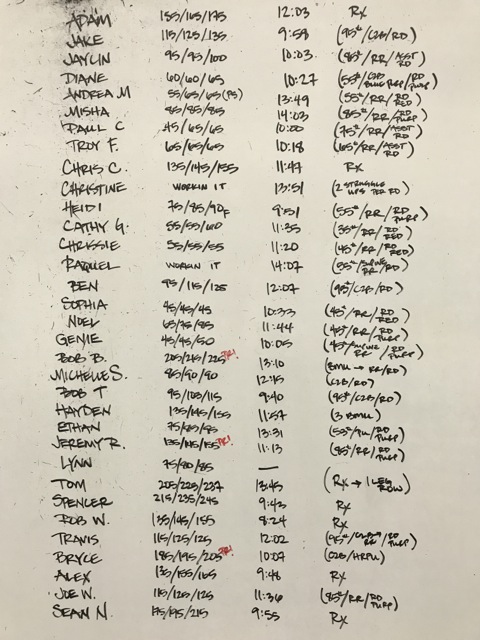 ADAM 155/165/175 12:03 Rx
JAKE 115/125/135 9:58 (95#/C2B/RD)
JAYLIN 95/95/100 10:03 (85#/RR/ASST RD)
DIANE 60/60/65 10:27 (55#/ RD PURP)
ANDREA M 55/65/65 (PS) 13:49 (55#/RR/RD RED)
MISHA 85/85/85 14:03 (85#/RR/RD PURP)
PAUL C 45/65/65 10:00 (75#/RR/ASST RD)
TROY F. 65/65/65 10:18 (65#/RR/ASST RD)
CHRIS C. 135/145/155 11:47 Rx
CHRISTINE WORKIN IT 13:51 (2 STRUGGLE UPS PER RD)
HEIDI 75/85/90F 9:51 (55#/RR/RD PURP)
CATHY G. 55/55/60 11:35 (35#/RR/RD RED)
CHRISSIE 55/55/55 11:20 (45#/RR/RD RED)
RAQUEL WORKIN IT 14:07 (35#/ RR/RD)
BEN 95/115/125 12:07 (95#/C2B/RD)
SOPHIA 45/45/45 10:33 (45#/RR/RD RED)
NOEL 65/75/85 11:44 (45#/RR/RD PURP)
GENIE 45/45/50 10:05 (45#/ RR/RD PURP)
BOB B. 205/215/225 PR! 13:10 (BMU → RR/RD)
MICHELLE S. 85/90/90 12:45 (C2B/RD)
BOB T 95/103/115 9:40 (95#/C2B/RD)
HAYDEN 135/145/155 11:57 (3 BMU)
ETHAN 75/85/85 13:31 (55#/PU/RD PURP)
JEREMY R. 135/145/155 PR! 11:13 (95#/RR/RD PURP)
LYNN 75/80/85 —
TOM 205/225/237 13:45 (Rx → 1 LEG ROW)
SPENCER 215/235/245 9:43 Rx
ROB W. 135/145/155 8:24 Rx
TRAVIS 115/125/125 12:02 (95#/ RR/RD PURP)
BRYCE 185/195/205 PR! 10:07 (C2B/HRPU)
ALEX 135/155/165 9:48 Rx
JOE W. 115/125/125 11:36 (85#/RR/RD PURP)
SEAN N. 175/195/215 9:55 Rx